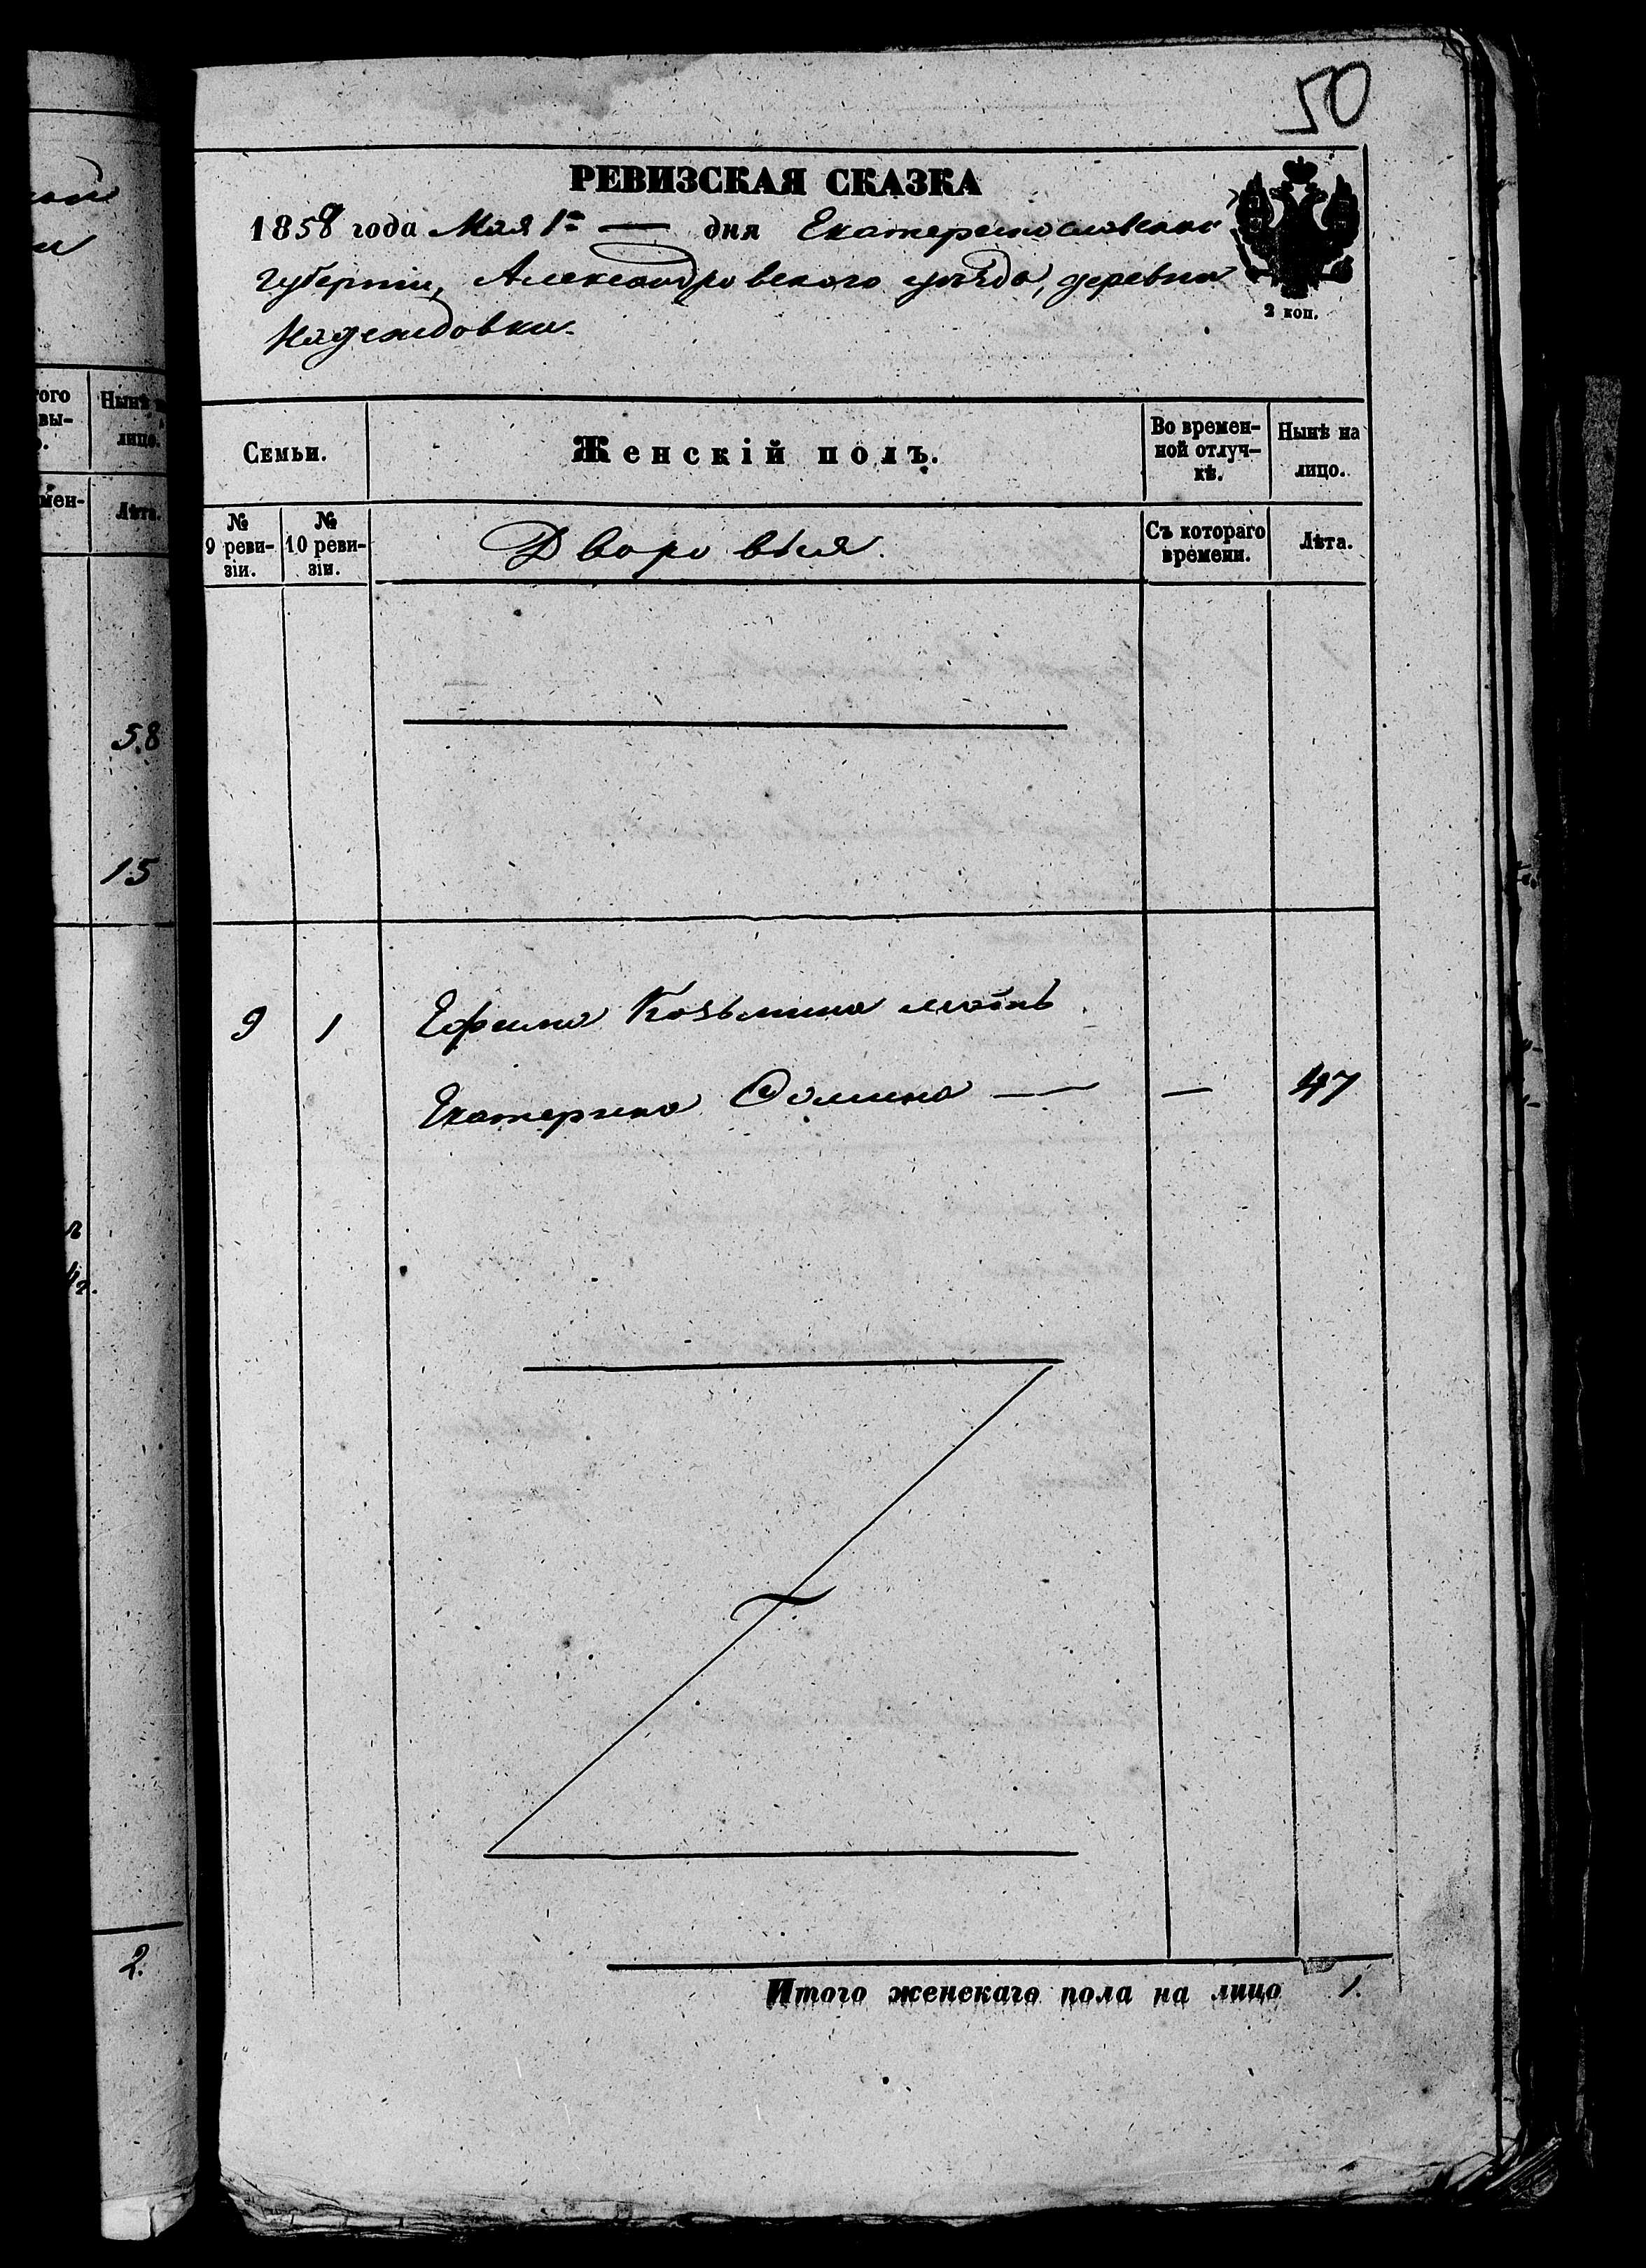 50
РЕВИЗСКАЯ СКАЗКА
1858 года Мая 1го — дня Екатеринославской
губерніи, Александровского уѣзда, деревни
Надеждовки.
2 коп.
Семьи.
Женскій полъ.
Во времен-
ной отлуч-
кѣ.
Нынѣ на
лицо.
№
9 реви-
зіи.
№
10 реви-
зіи.
Дворовыя.
Съ котораго
времени.
Лѣта.
9 1 Ефима Козьмина мать
Екатерина Фомина — — 47
Итого женскаго пола на лицо 1.
того
вы-
Нынѣ
лицо.
мен-
Лѣта.
58
15
2.